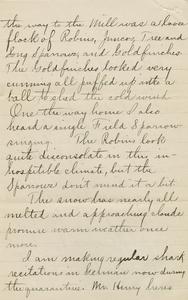 the way to the Mill was a loose
flock of Robins, Juncos, Tree and
Song Sparrows, and Goldfinches.
The Goldfinches looked very
cunning all puffed up into a
ball to shed the cold wind.
One the way home I also
heard a single Field Sparrow
singing. The Robins look
quite disconsolate in the in-
hospitable climate, but the
Sparrows don't mind it a bit.
The snow has nearly all
melted and approaching clouds
promise warm weather once
more.
I am making regular
recitations in German now during
the quarantine. Mr. Henry